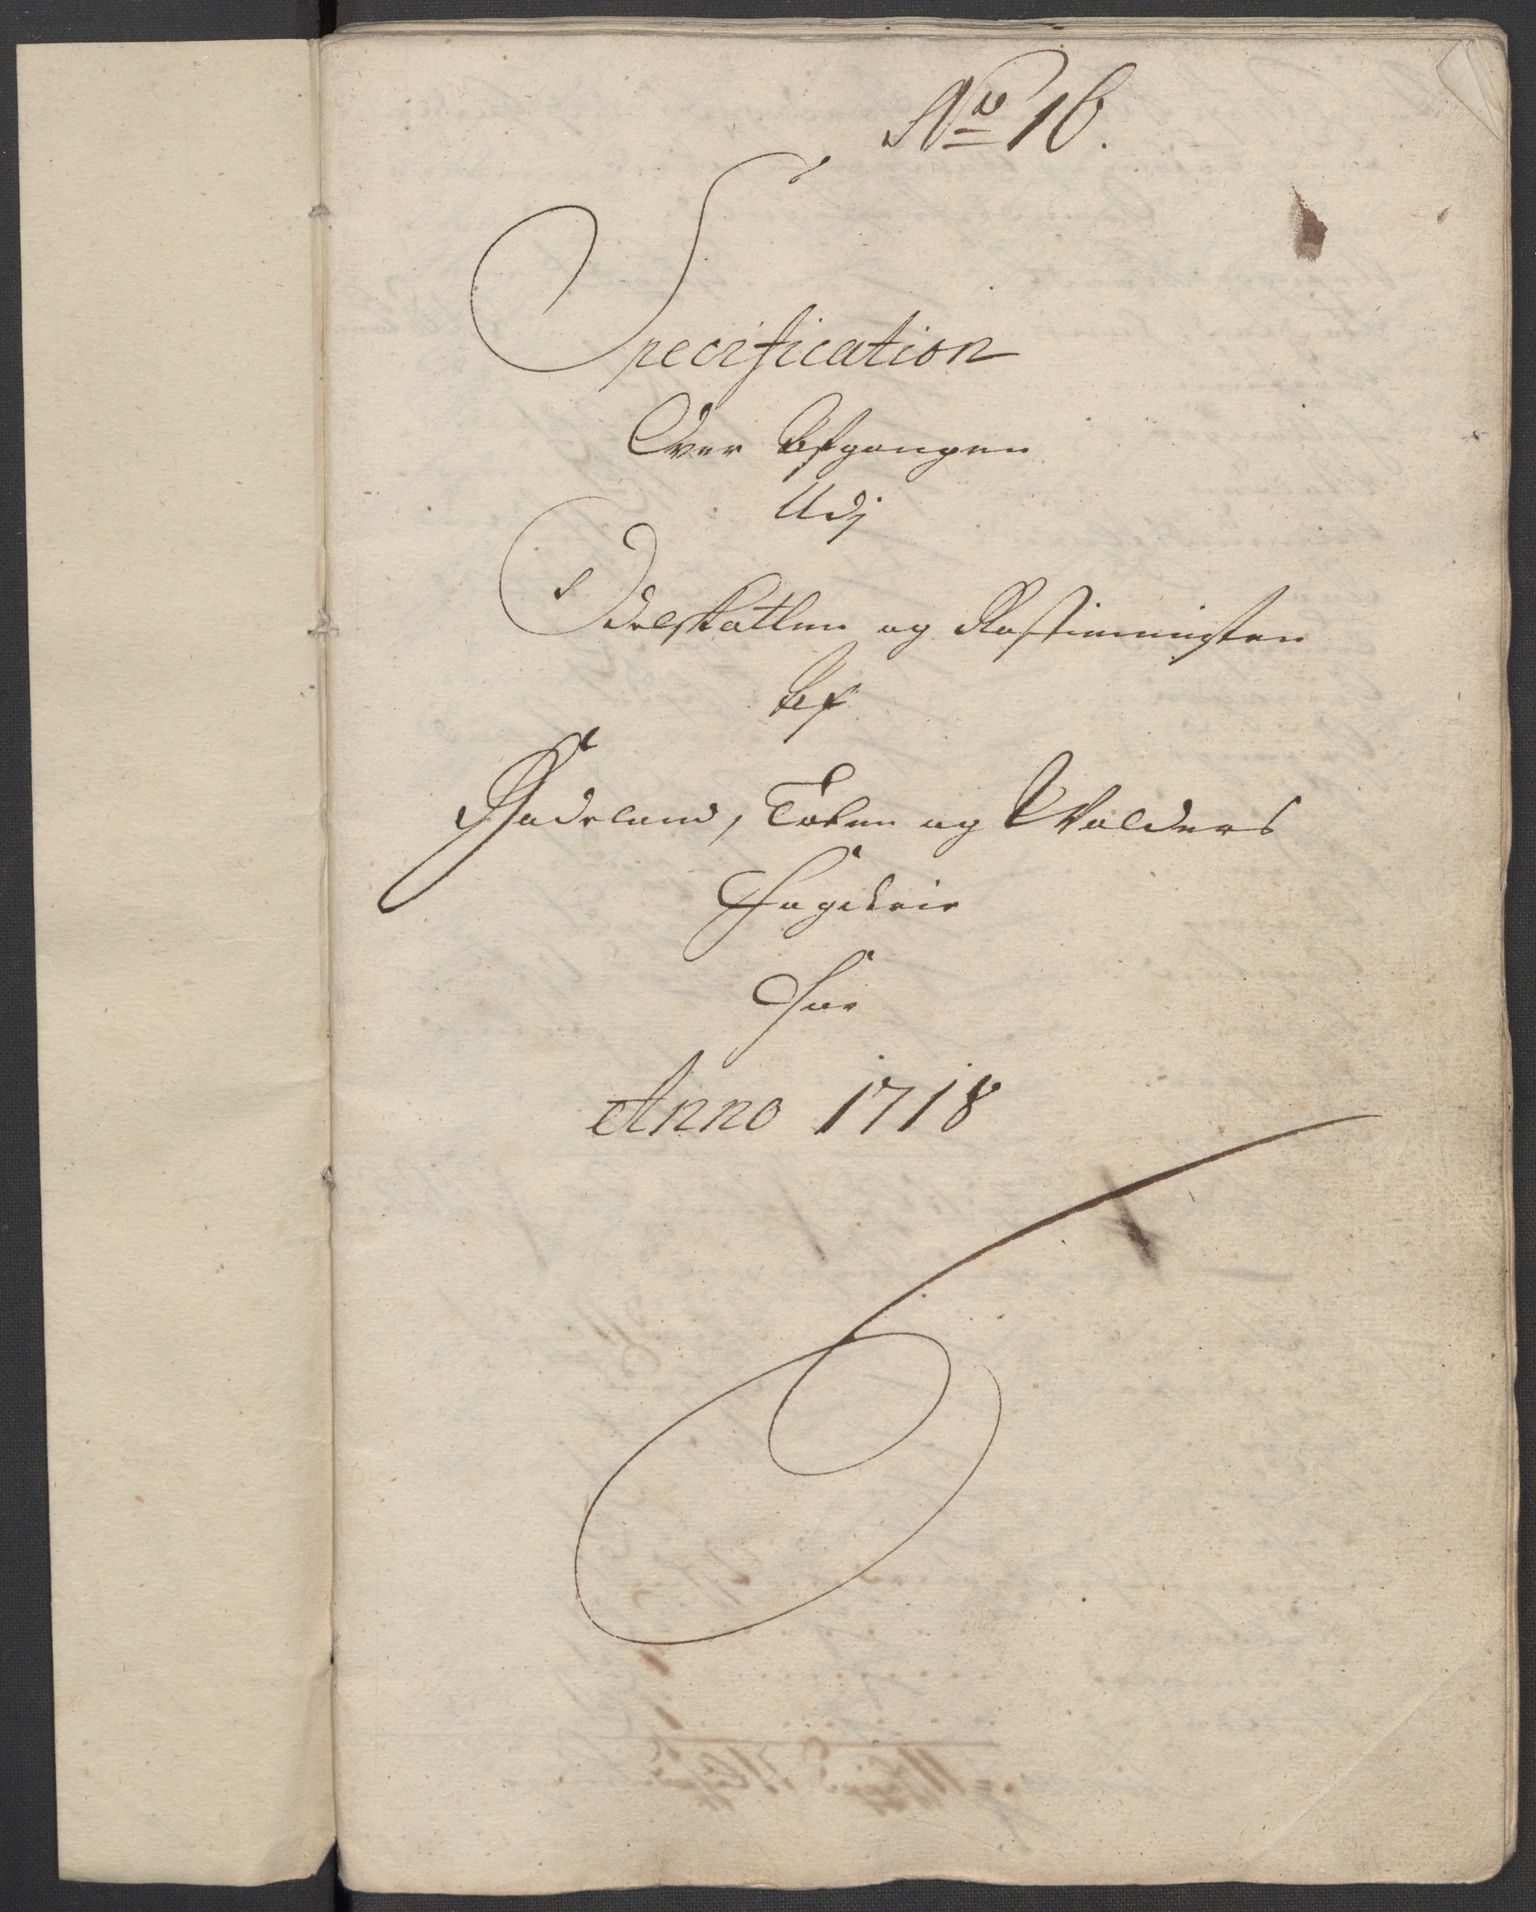 No 16.
Specification
Over Afgangen
Udj
Odelskatten og Rostiennisten
Af
Hadeland, Toten og Walders
Fogderie
For
Anno 1718